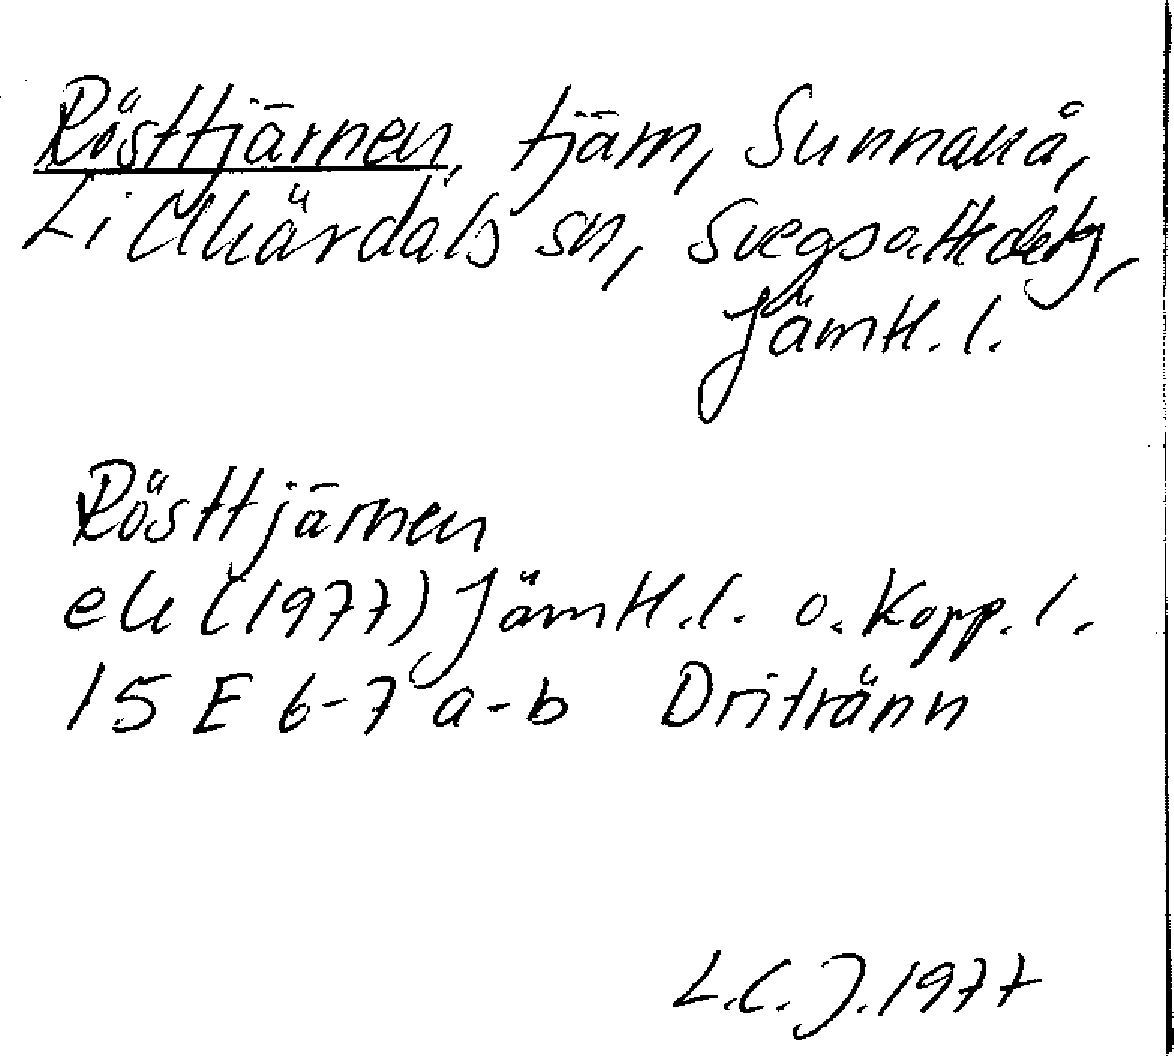 Rösttjärnen, tjärn, Sunnanå,
Lillhärdals sn,
Jämtl. l.
Rösttjärnen
ek (1977) Jämtl. l. o. Kopp. l.
15 E 6-7 a-b Dritränn
L.C.J. 1977